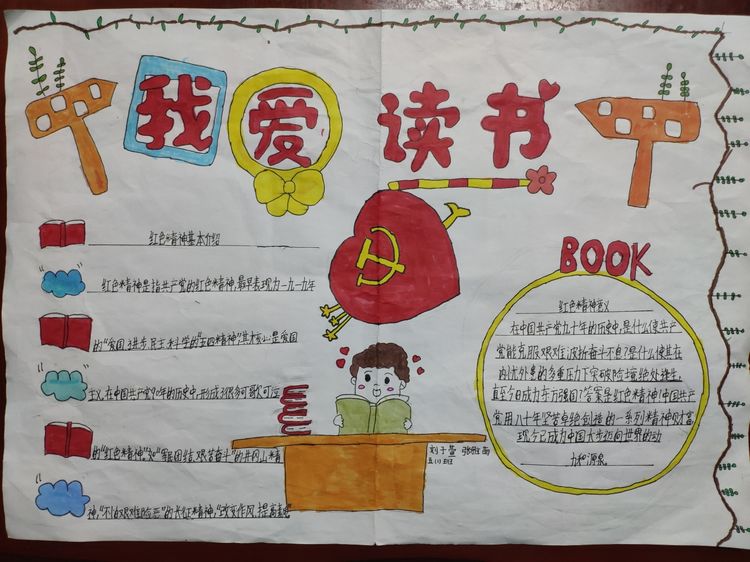 我爱读书
红色精神基本介绍
红色精神是指共产党的红色精神,最早表现为一九一九年
的“爱国、进步、民主、科学的“五四精神”,其核心是爱国
主义,在中国共产党90年的历史中,形成了很多可歌可泣
的“红色精神”,如“坚团结,艰苦奋斗”的井冈山精
神,“不怕艰难险恶”的长征精神,“改变作风,提高
BOOK
红色精神意义
在中国共产党九十年的历史中,是什么使共产
党能克服艰难波折奋斗不息?是什么使其在
内忧外患的多重压力下突破险境绝处逢生,
直至今日成为东方强国?答案是红色精神!中国共产
党用八十年坚苦卓绝创造的一系列精神财富,
现今已成为中国大步迈向世界的动
力和源泉
刘子萱 张雅雨
五(1)班